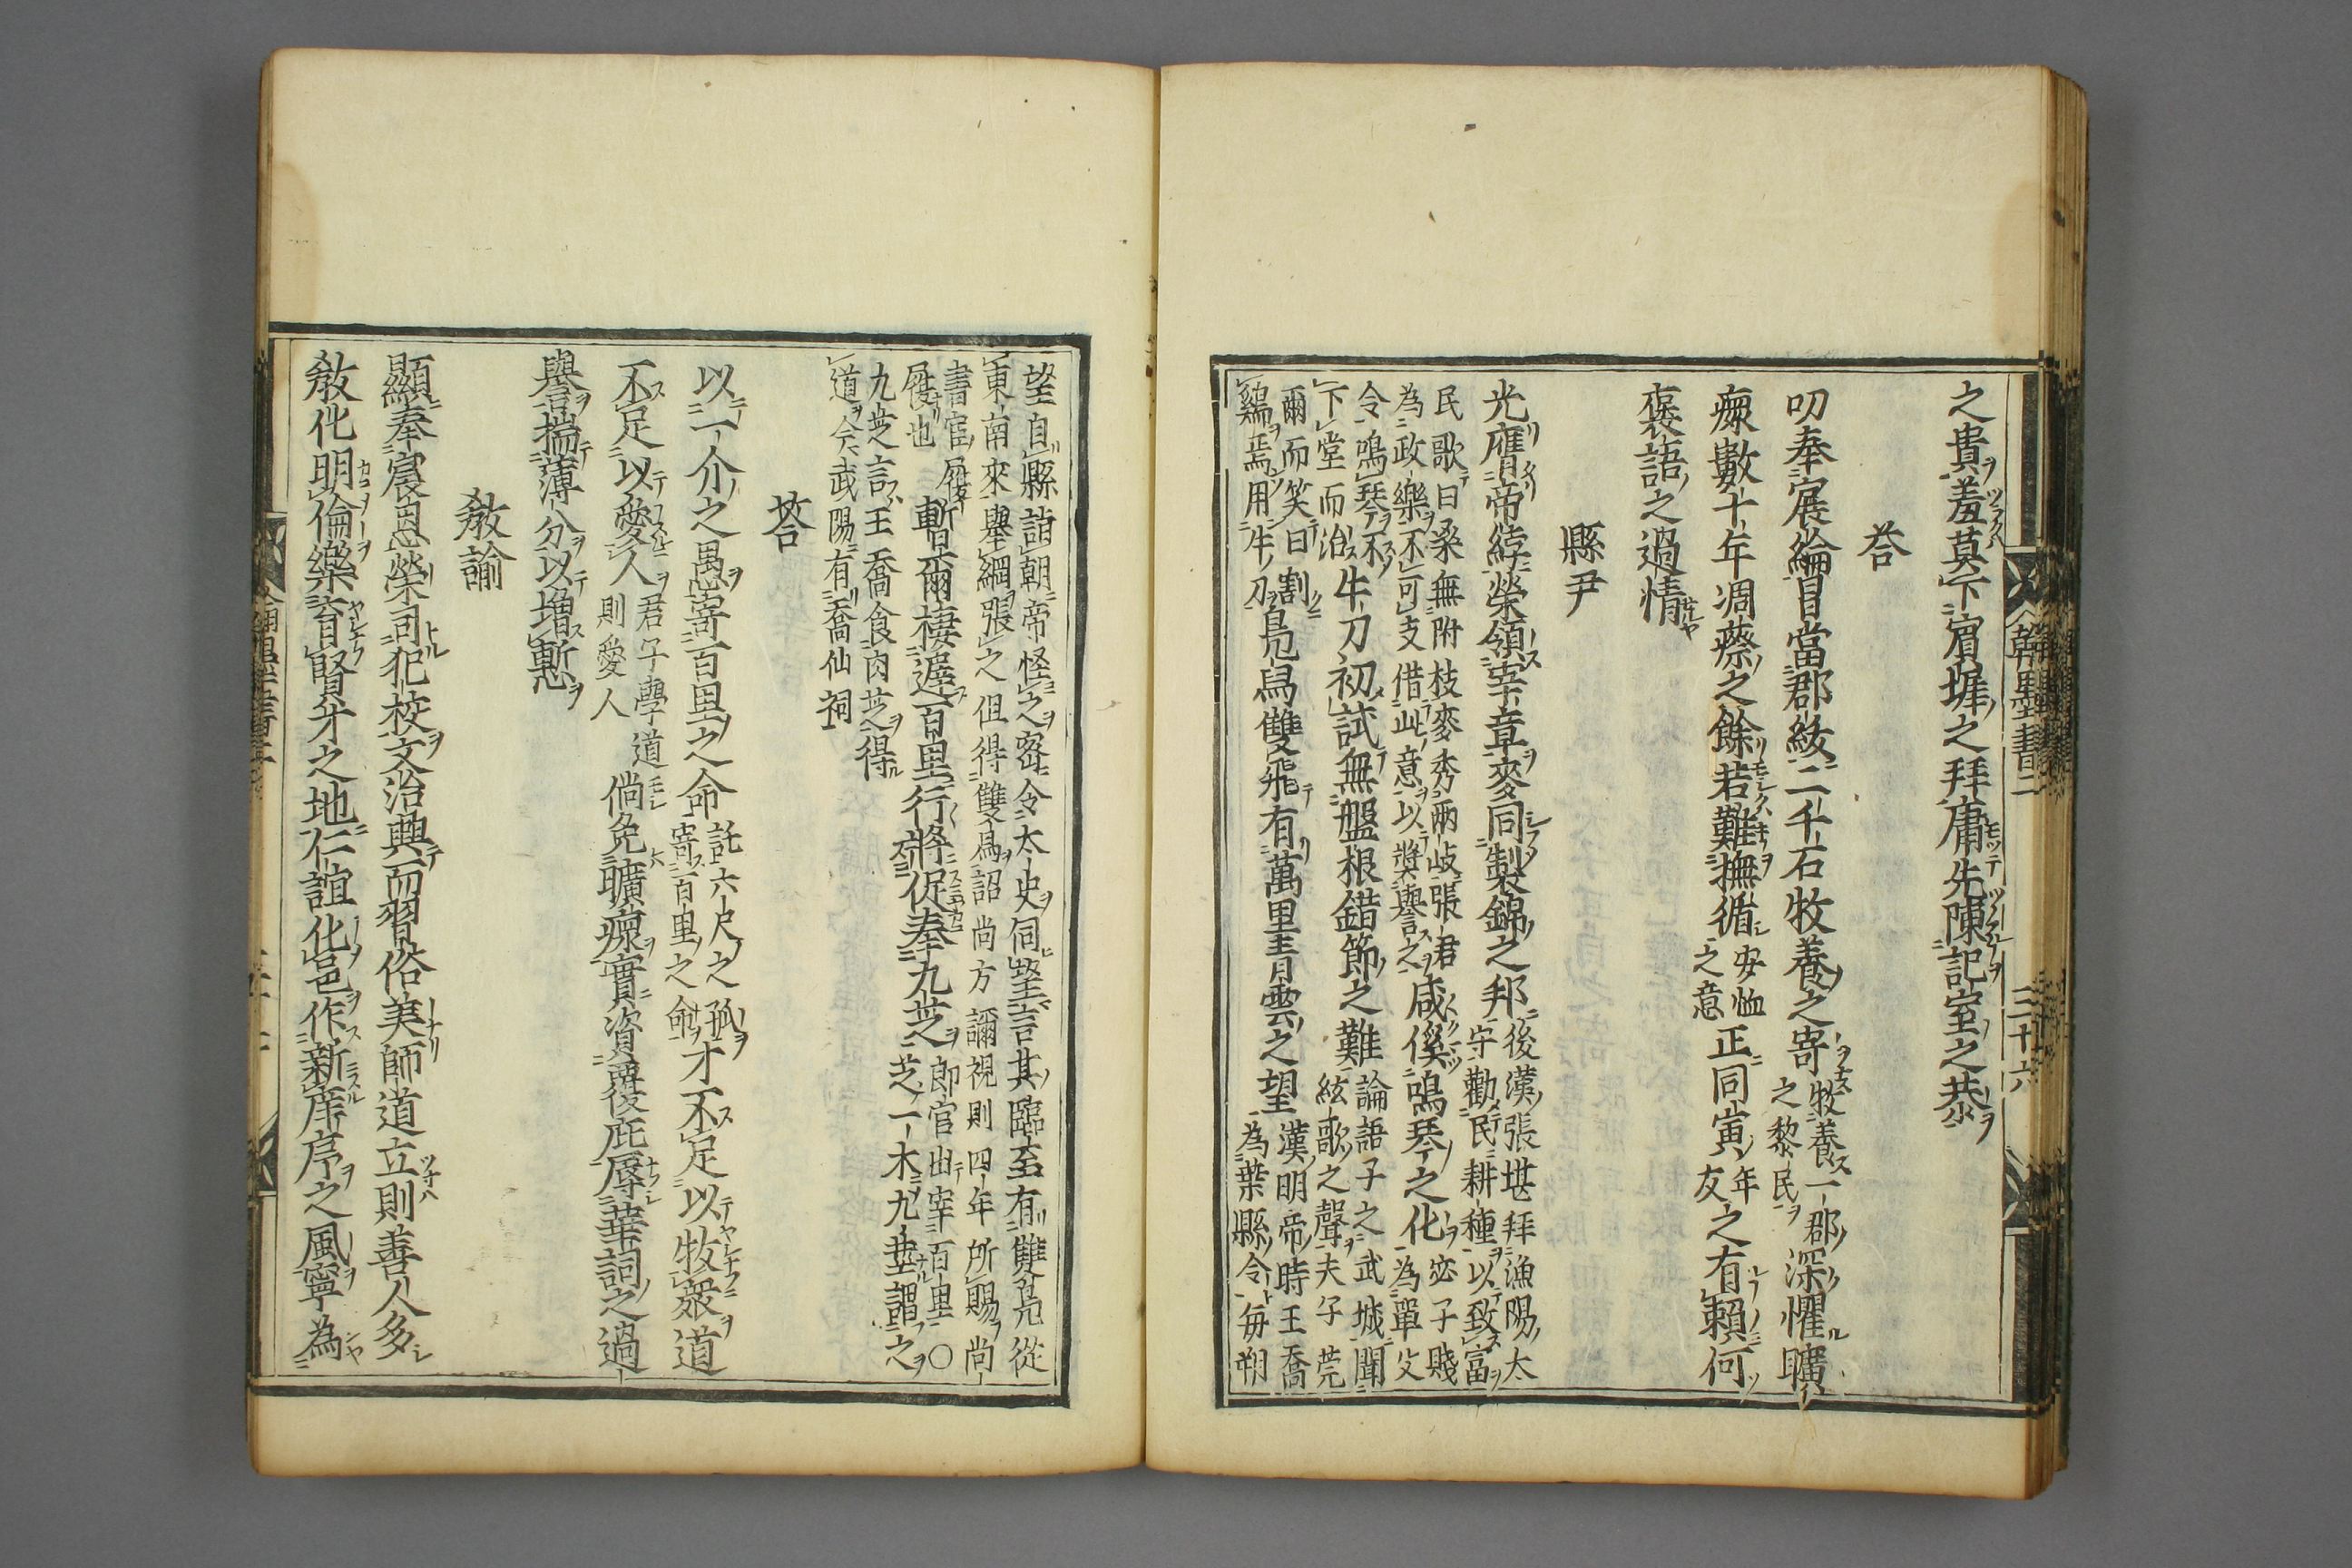 之貴羞莫下賓墀之拜庸先陳記室之恭
荅
叨奉宸綸冒當郡紱二千石牧養之寄牧養一郡之黎民深懼曠
瘝數十年凋瘵之餘若難撫循安恤之意正同寅年友之有賴何
褒語之過情
縣尹
光膺帝綍榮領宰章麥同製錦之邦後漢張堪拜漁陽太
守勸民耕種以致富
民歌曰桑無附枝麥秀兩岐張君
為政樂不可支借此意以獎譽之咸傒鳴琴之化宓子賤
為單父
令鳴琴不
下堂而治牛刀初試無盤根錯節之難論語子之武城聞
絃歌之聲夫子莞
爾而笑曰割
鷄焉用牛刀鳧舄雙飛有萬里青雲之望漢明帝時王喬
為葉縣令每朔
望自縣詣朝帝怪之密令太史伺望言其臨至有雙鳧從
東南來舉網張之但得雙舄詔尚方診視則四年所賜尚
書官屬
履也暫爾棲遲百里行將促奉九芝郎官出宰百里〇
芝一木九莖謂之
九芝言王喬食肉芝得
道今武陽有喬仙祠
荅
以一介之愚寄百里之命託六尺之孤
寄百里之命才不足以牧衆道
不足以愛人君子學道
則愛人倘免曠瘝實資覆庇辱華詞之過
譽揣薄分以增慙
敎諭
顯奉宸恩榮司泮校文治興而習俗美師道立則善人多
敎化明倫樂育賢才之地仁誼化邑作新庠序之風寧為
翰墨書二
三十六